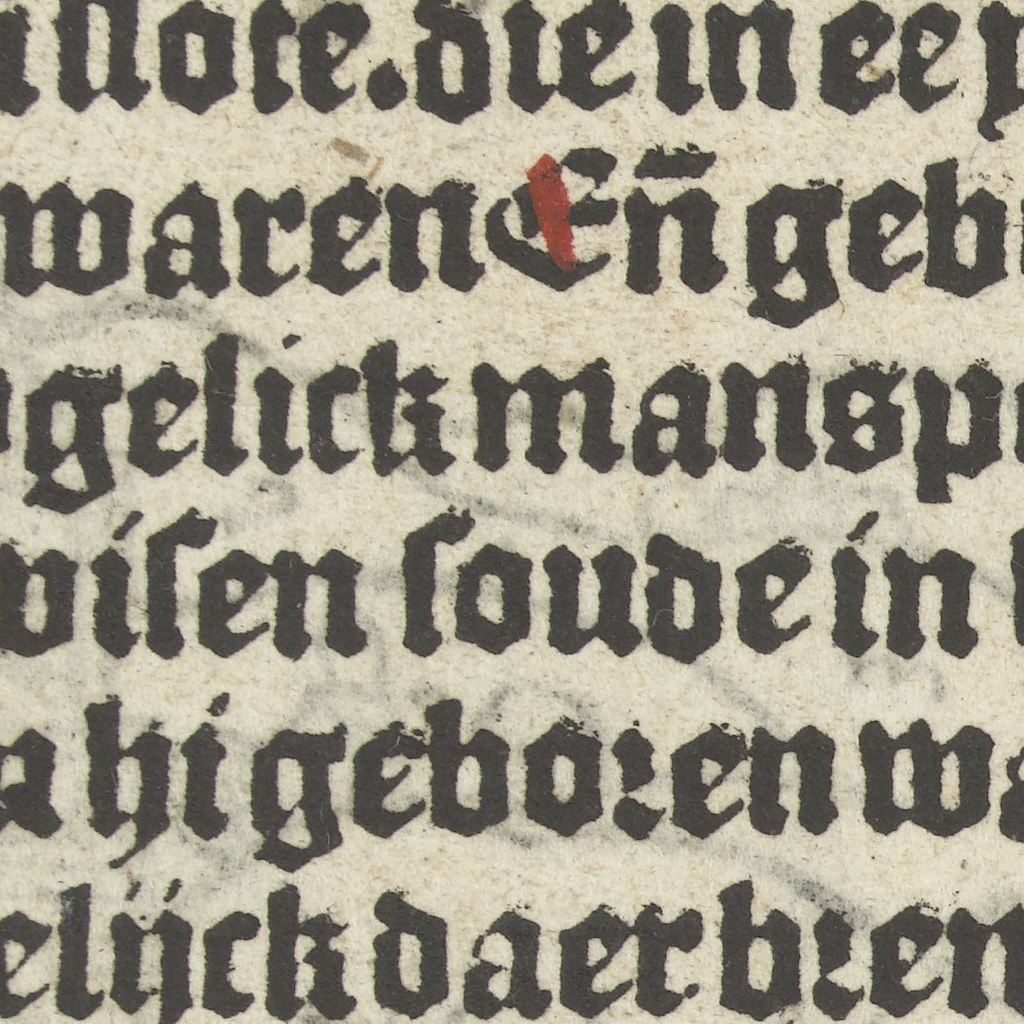 slote. die in eē
waren Eñ geb
gelick mans p
wisen soude in
hi geboren wa
elijck daer bren